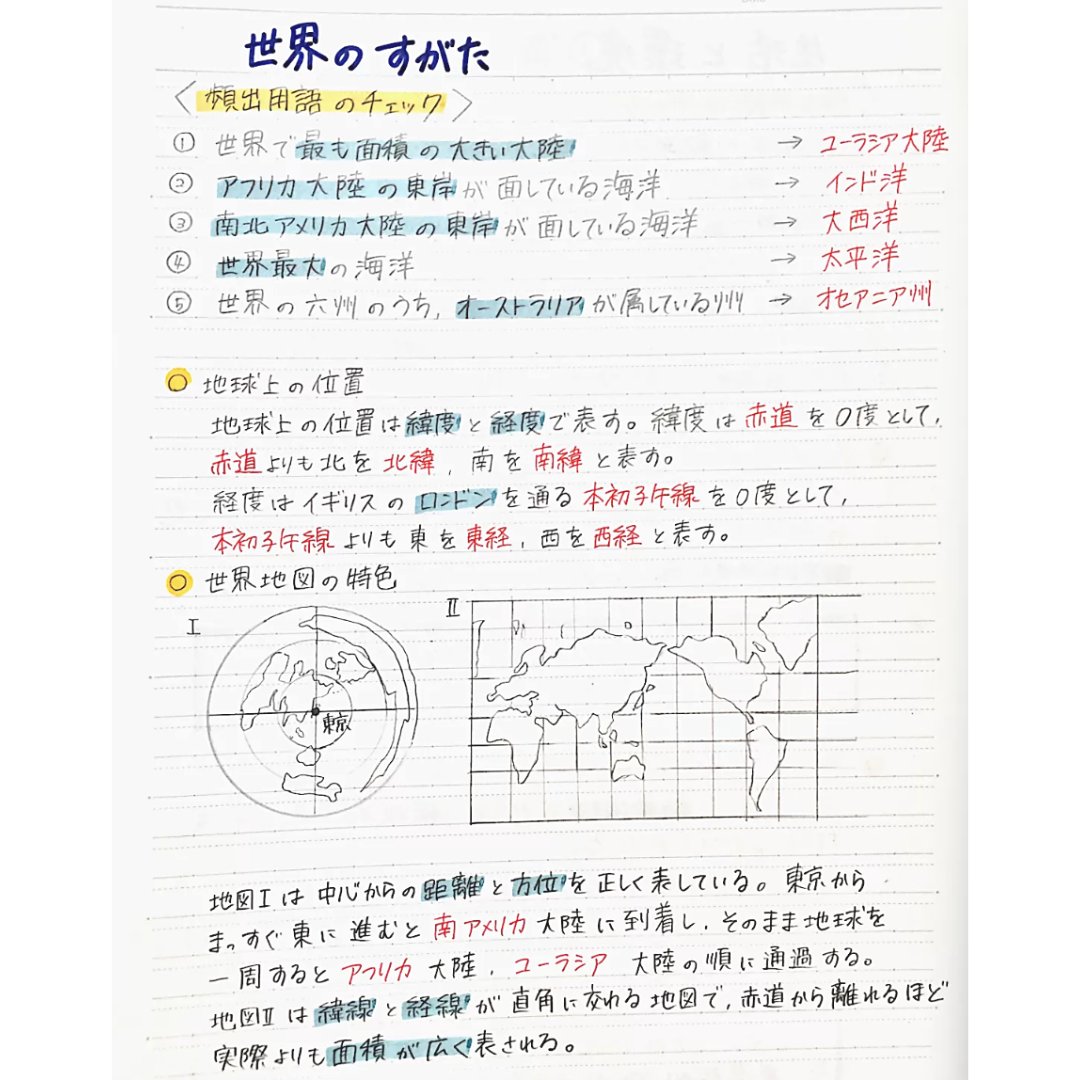 世界のすがた
〈頻出用語のチェック〉
① 世界で最も面積の大きい大陸 → ユーラシア大陸
② アフリカ大陸の東岸が面している海洋 → インド洋
③ 南北アメリカ大陸の東岸が面している海洋 → 大西洋
④ 世界最大の海洋 → 太平洋
⑤ 世界の六州のうち,オーストラリアが属している州 → オセアニア州
○ 地球上の位置
地球上の位置は緯度と経度で表す。緯度は赤道を0度として,
赤道よりも北を北緯,南を南緯と表す。
経度はイギリスのロンドンを通る本初子午線を0度として,
本初子午線よりも東を東経,西を西経と表す。
○ 世界地図の特色
I
II
東京
地図Iは中心からの距離と方位を正しく表している。東京から
まっすぐ東に進むと南アメリカ大陸に到着し,そのまま地球を
一周するとアフリカ大陸,ユーラシア大陸の順に通過する。
地図IIは緯線と経線が直角に交わる地図で,赤道から離れるほど
実際よりも面積が広く表される。